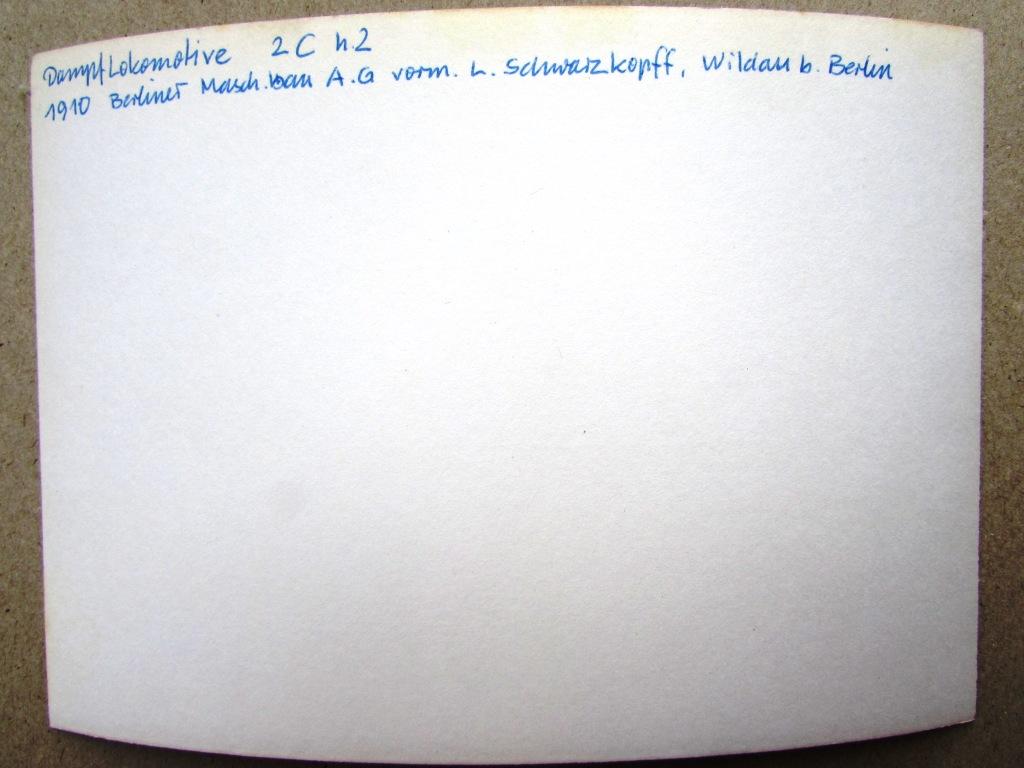 Dampflokomotive 2C h.2
1910 Berliner Masch.bau A.G vorm. L. Schwarzkopff, Wildau b. Berlin